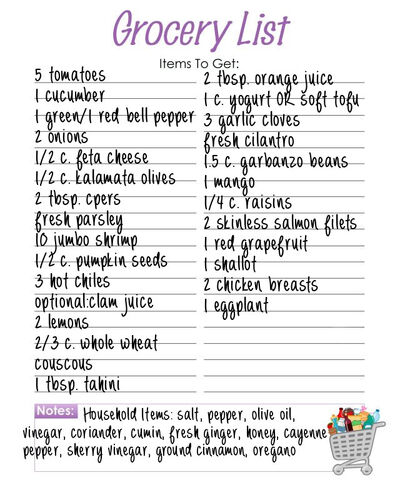 Grocery List
Items To Get:
5 tomatoes
1 cucumber
1 green/1 red bell pepper
2 onions
1/2 c. feta cheese
1/2 c. kalamata olives
2 tbsp. cpers
fresh parsley
10 jumbo shrimp
1/2 c. pumpkin seeds
3 hot chiles
optional:clam juice
2 lemons
2/3 c. whole wheat
couscous
1 tbsp. tahini
2 tbsp. orange juice
1 c. yogurt OR soft tofu
3 garlic cloves
fresh cilantro
1.5 c. garbanzo beans
1 mango
1/4 c. raisins
2 skinless salmon filets
1 red grapefruit
1 shallot
2 chicken breasts
1 eggplant
Notes: Household Items: salt, pepper, olive oil,
vinegar, coriander, cumin, fresh ginger, honey, cayenne
pepper, sherry vinegar, ground cinnamon, oregano